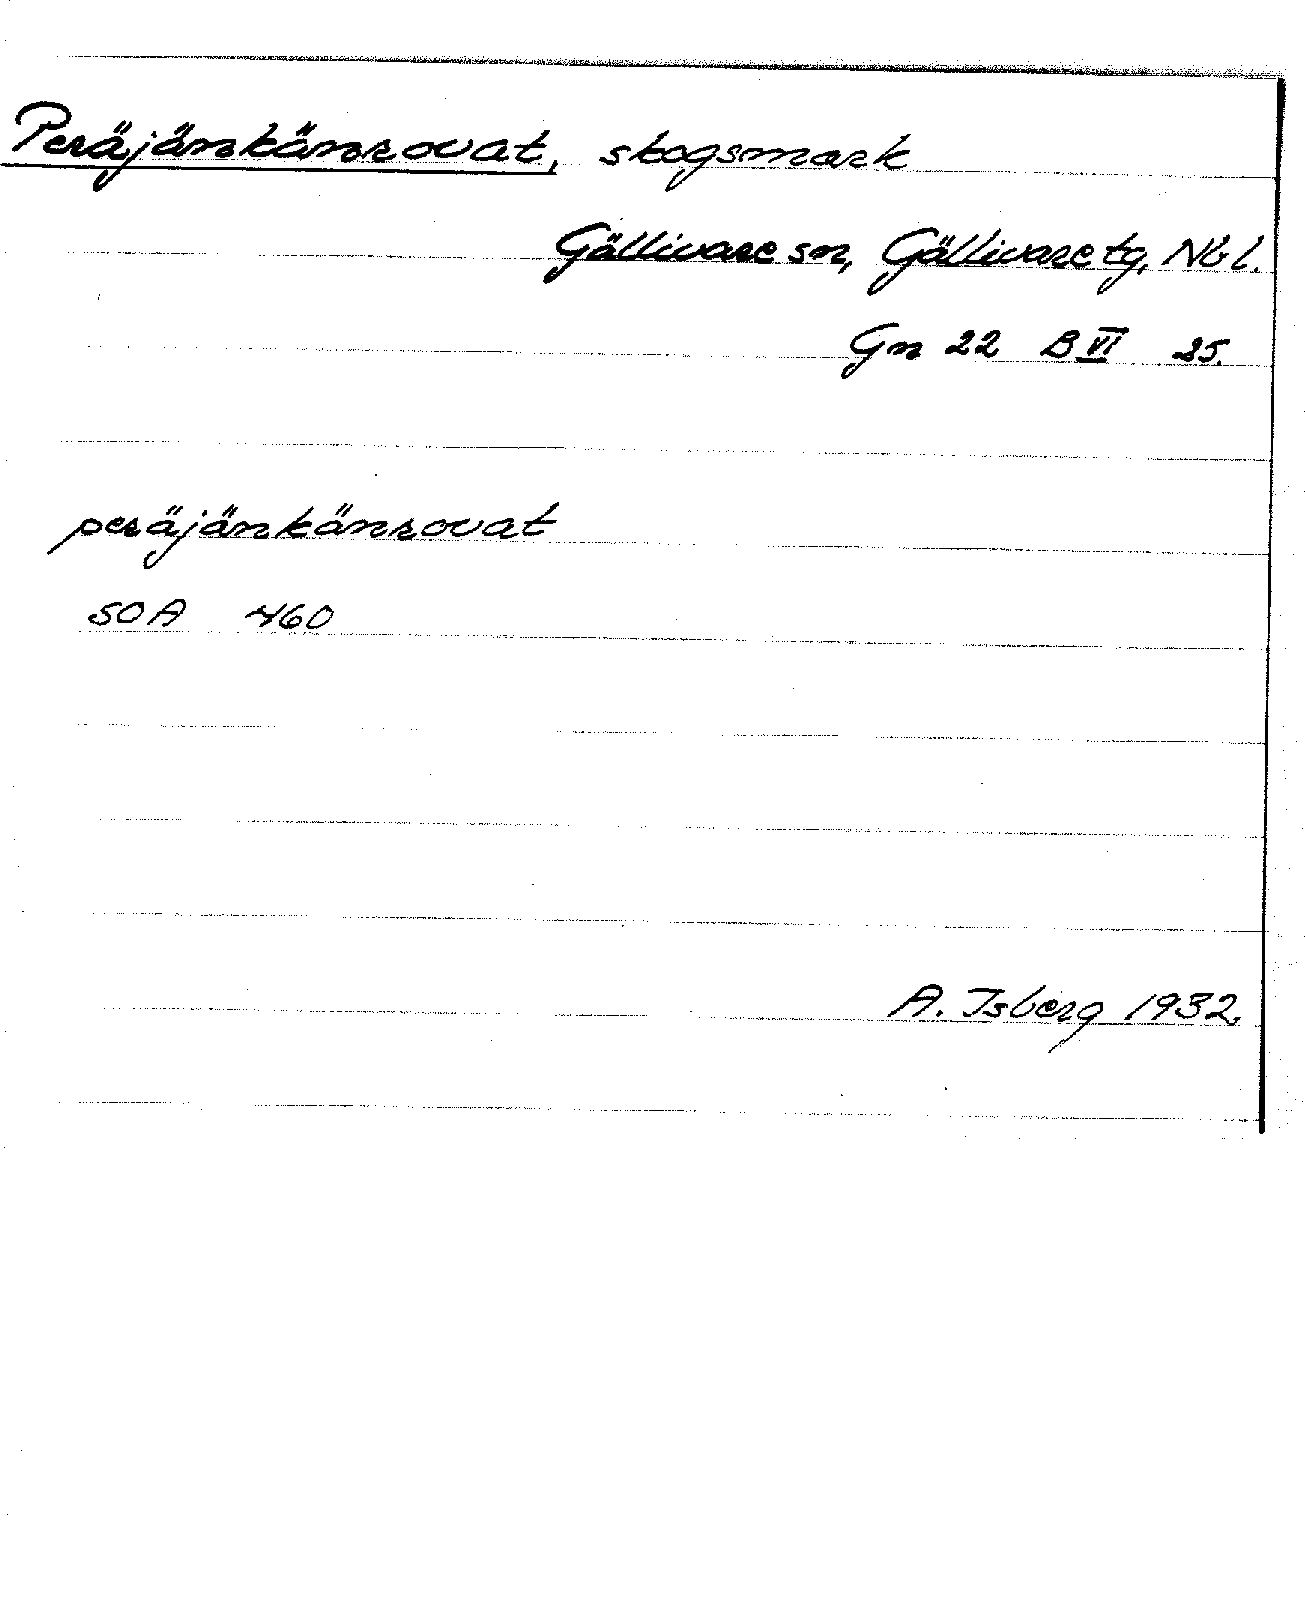 Peräjänkänrovat, skogsmark
Gällivare sn, Gällivare tg, Nb l.
Gn 22 B VI 25.
peräjänkänrovat
50A 460
A. Isberg 1932.